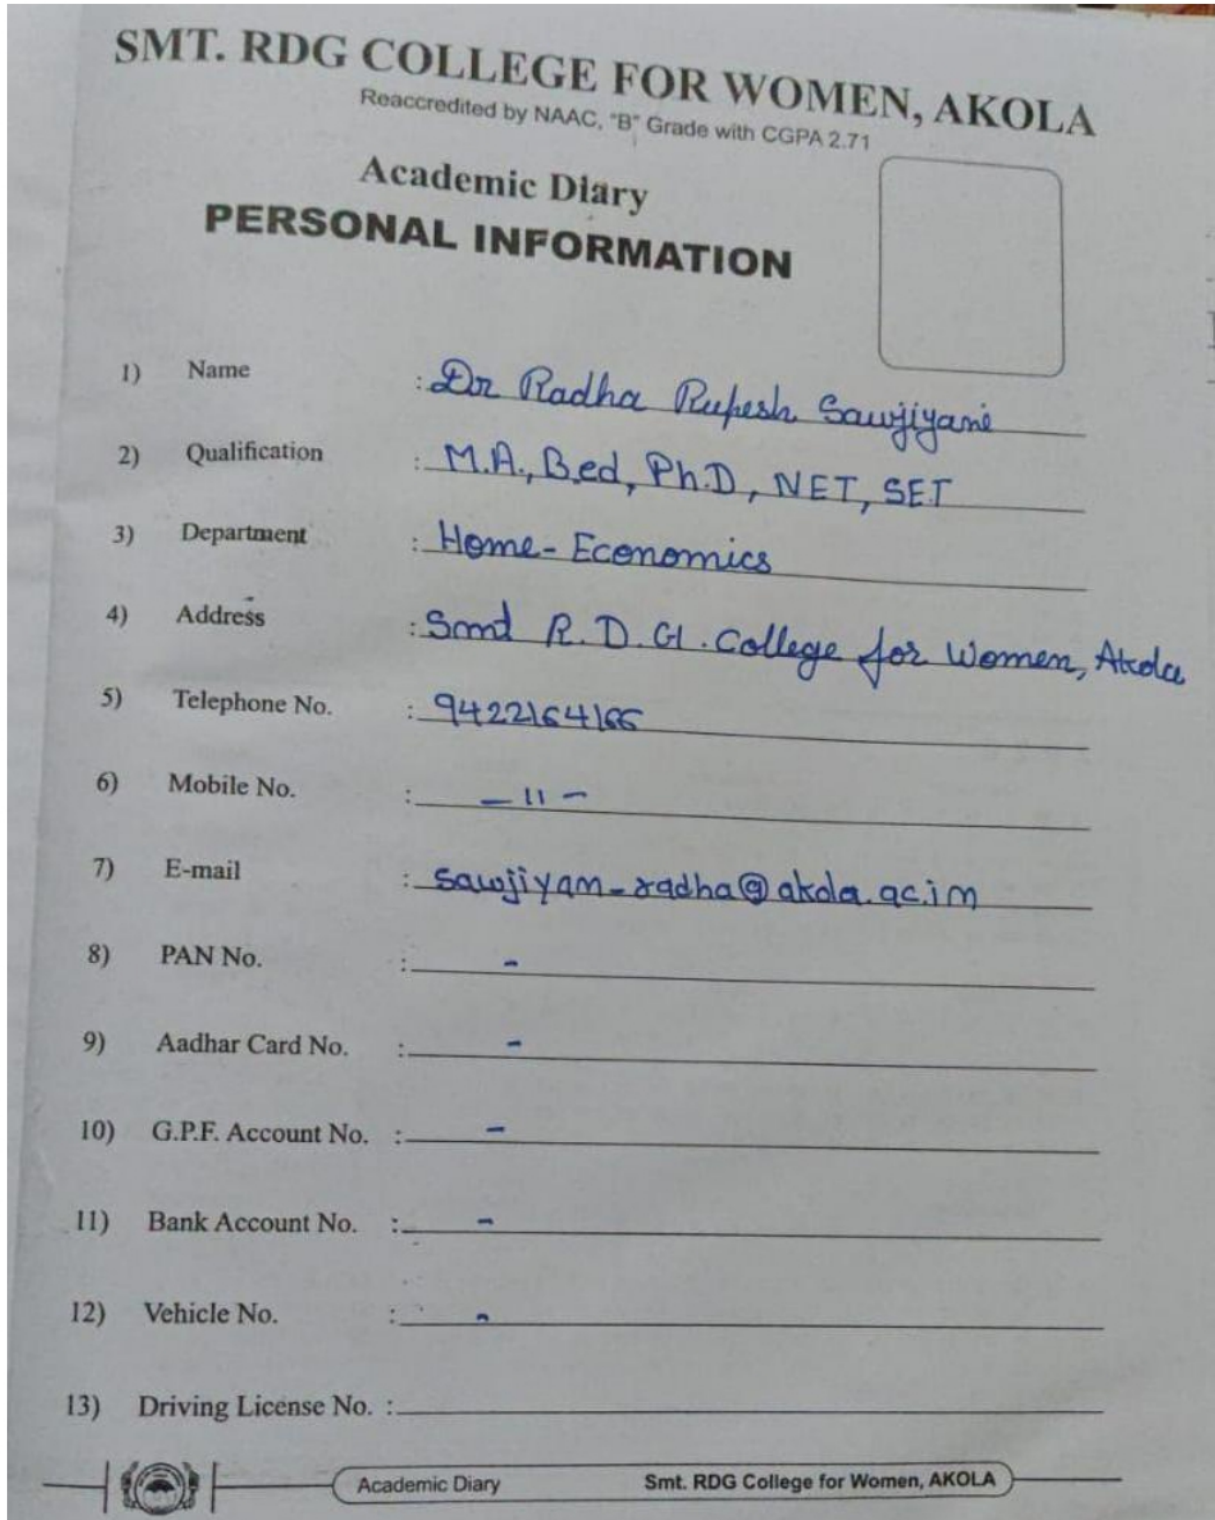 SMT. RDG COLLEGE FOR WOMEN, AKOLA
Reaccredited by NAAC, "B" Grade with CGPA 2.71
Academic Diary
PERSONAL INFORMATION
1) Name : Dr Radha Rupesh Sawjiyani
2) Qualification : M.A., B.ed, Ph.D, NET, SET
3) Department : Home-Economics
4) Address : Smt R.D.G. College for Women, Akola
5) Telephone No. : 9422164166
6) Mobile No. : -11-
7) E-mail : sawjiyam-radha@akola.ac.in
8) PAN No. : -
9) Aadhar Card No. : -
10) G.P.F. Account No. : -
11) Bank Account No. : -
12) Vehicle No. : -
13) Driving License No. :
Academic Diary Smt. RDG College for Women, AKOLA